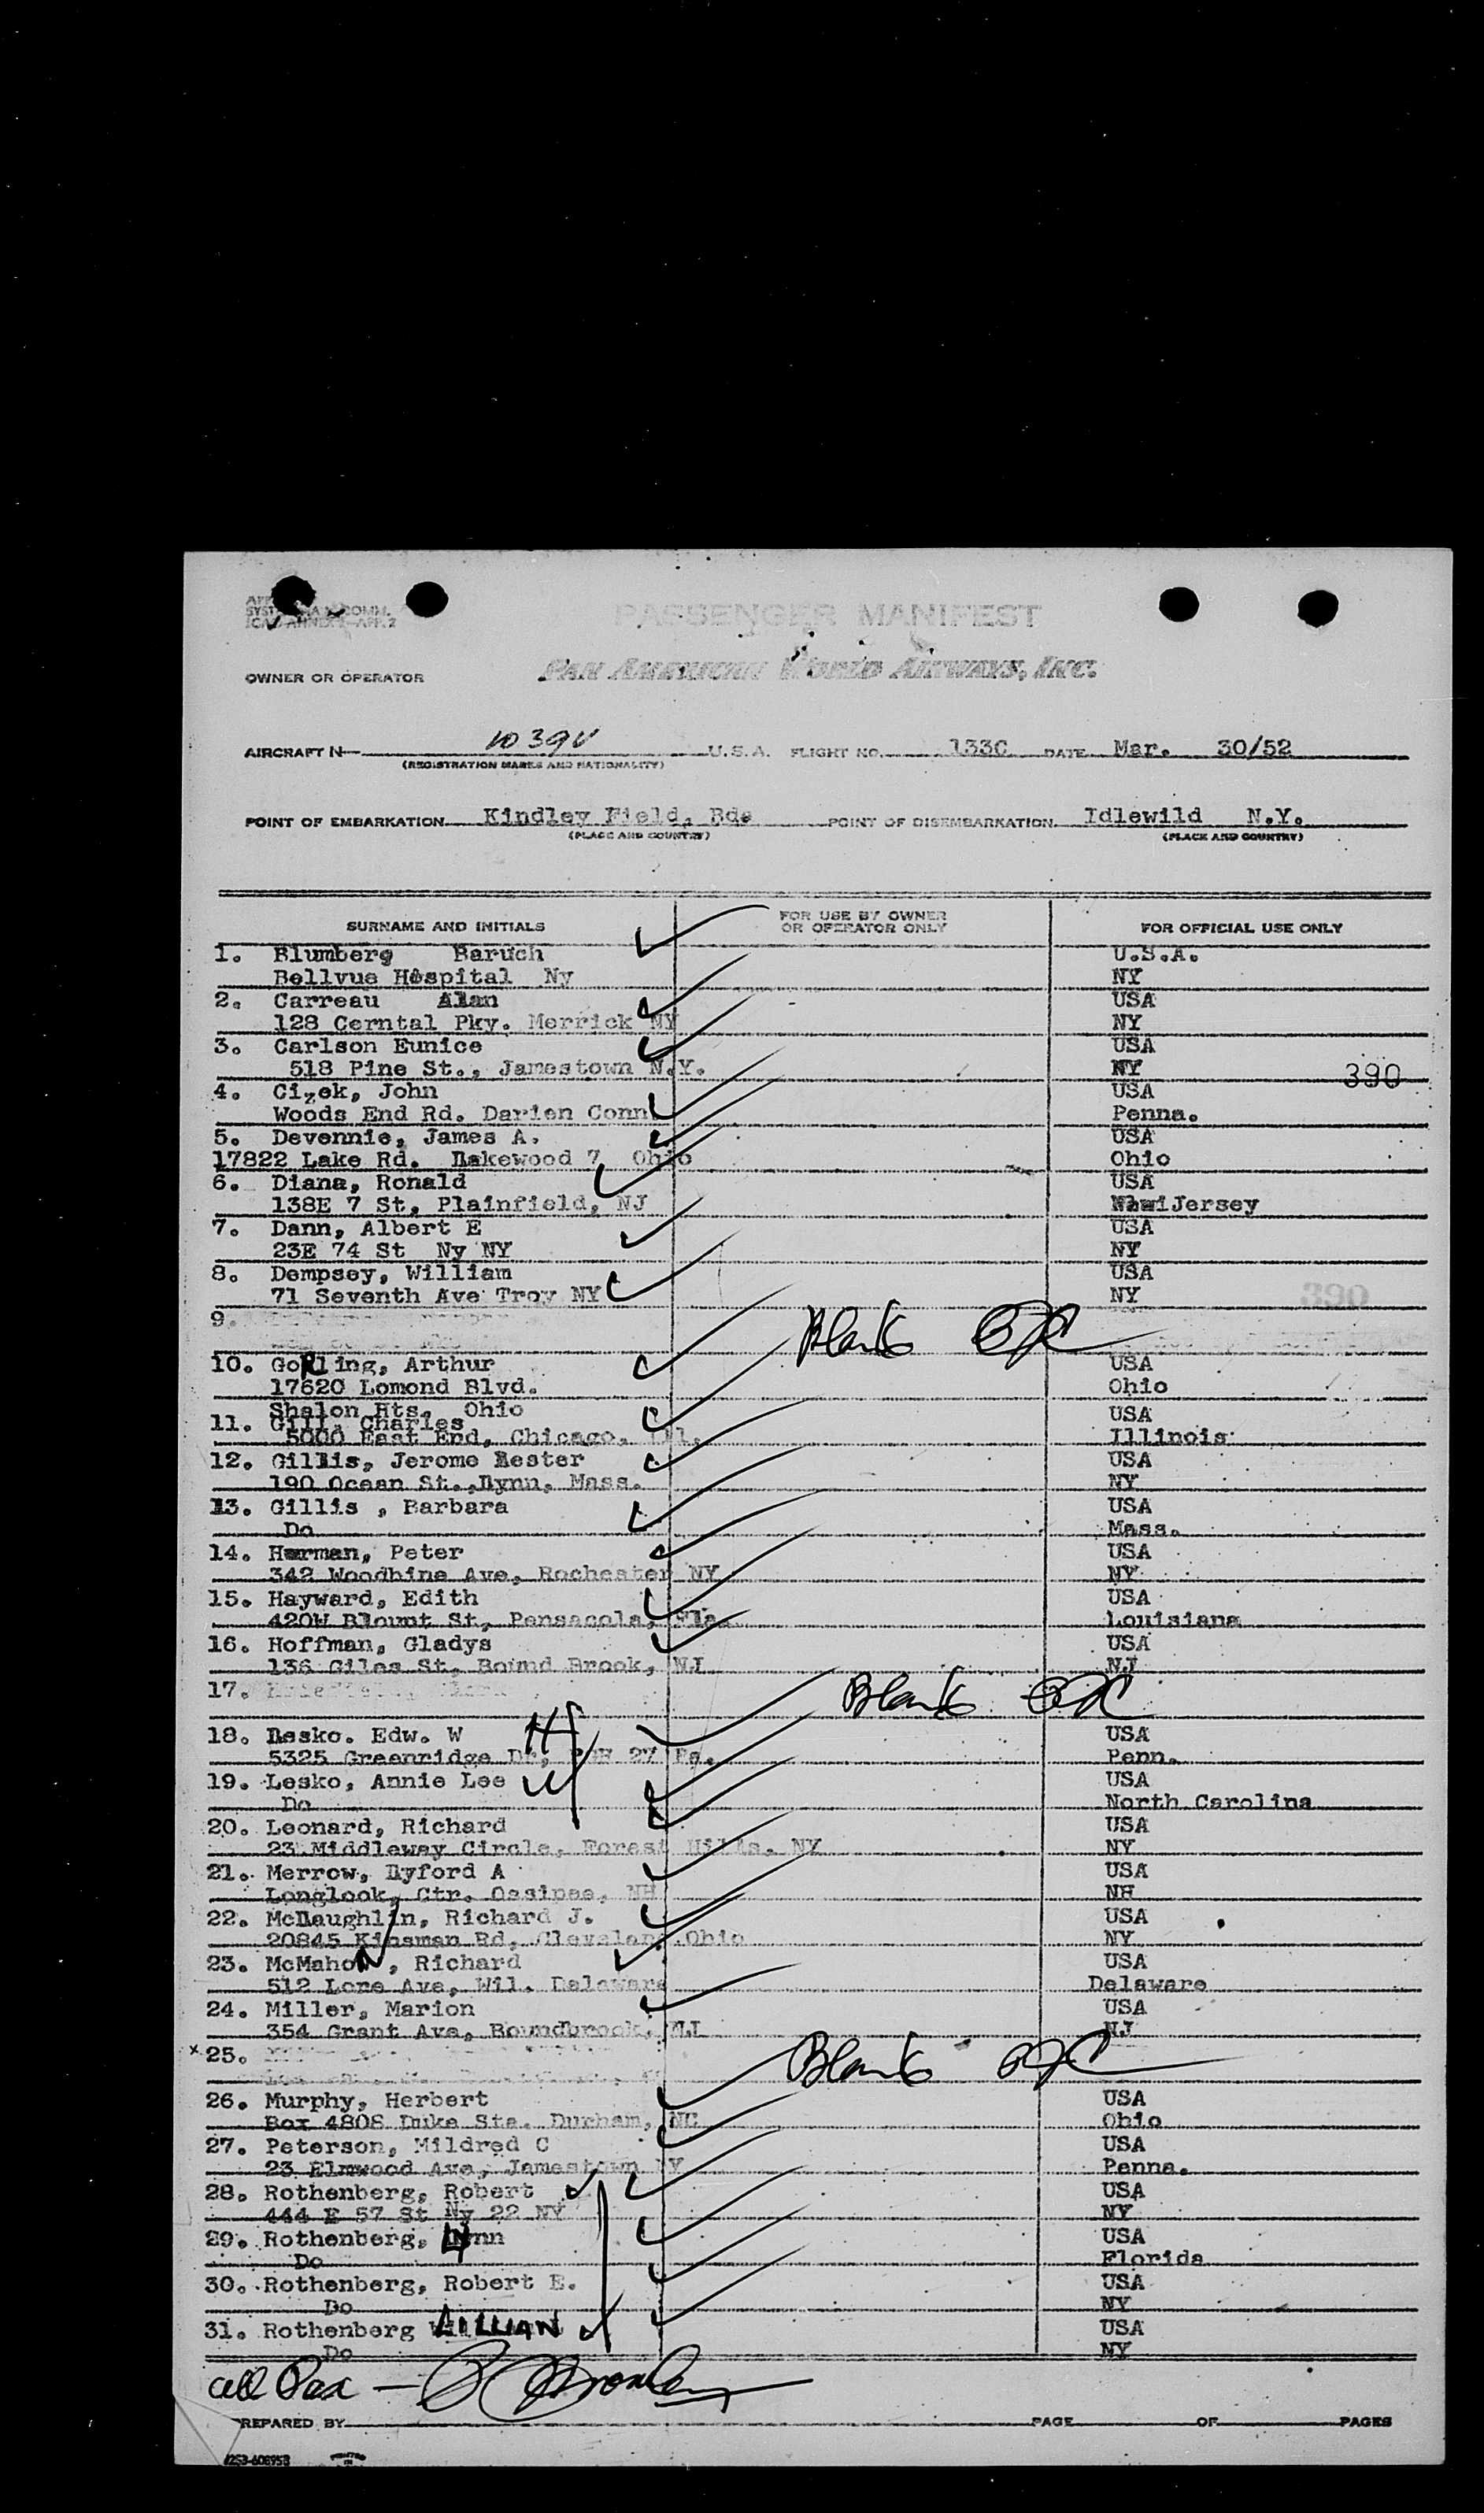 PASSENGER MANIFEST
OWNER OR OPERATOR PAN AMERICAN WORLD AIRWAYS, INC.
AIRCRAFT N 1039V U.S.A. FLIGHT NO. 133C DATE Mar. 30/52
(REGISTRATION MARKS AND NATIONALITY)
POINT OF EMBARKATION Kindley Field, Bda POINT OF DISEMBARKATION Idlewild N.Y.
(PLACE AND COUNTRY) (PLACE AND COUNTRY)
SURNAME AND INITIALS FOR USE BY OWNER OR OPERATOR ONLY FOR OFFICIAL USE ONLY
1. Blumberg Baruch U.S.A.
Bellvue Hospital Ny NY
2. Carreau Alan USA
128 Cerntal Pky. Merrick NY NY
3. Carlson Eunice USA
518 Pine St., Jamestown N.Y. NY 390
4. Cizek, John USA
Woods End Rd. Darien Conn. Penna.
5. Devennie, James A. USA
17822 Lake Rd. Lakewood 7 Ohio Ohio
6. Diana, Ronald USA
138E 7 St, Plainfield, NJ New Jersey
7. Dann, Albert E USA
23E 74 St Ny NY NY
8. Dempsey, William USA
71 Seventh Ave Troy NY NY 390
9. Blank
10. GoRling, Arthur USA
17620 Lomond Blvd. Ohio
Shalon Hts. Ohio
11. Gill, Charles USA
5000 East End, Chicago, Ill. Illinois
12. Gillis, Jerome Lester USA
190 Ocean St., Lynn, Mass. NY
13. Gillis , Barbara USA
Do Mass.
14. Herman, Peter USA
342 Woodbine Ave, Rochester NY NY
15. Hayward, Edith USA
420W Blount St, Pensacola, Fla. Louisiana
16. Hoffman, Gladys USA
136 Giles St, Bound Brook, NJ NJ
17. Blank
18. Lesko. Edw. W USA
5325 Greenridge Dr, PGH 27 Pa. Penn.
19. Lesko, Annie Lee USA
Do North Carolina
20. Leonard, Richard USA
23 Middleway Circle, Forest Hills, NY NY
21. Merrow, Lyford A USA
Longlook, Ctr. Ossipee, NH NH
22. McLaughlin, Richard J. USA
20845 Kinsman Rd, Cleveland Ohio NY
23. McMahoN , Richard USA
512 Lore Ave, Wil. Delaware Delaware
24. Miller, Marion USA
354 Grant Ave, Boundbrook, NJ NJ
x25. Blank
26. Murphy, Herbert USA
Box 4808 Duke Sta. Durham, NC Ohio
27. Peterson, Mildred C USA
23 Elmwood Ave, Jamestown NY Penna.
28. Rothenberg, Robert USA
444 E 57 St Ny 22 NY NY
29. Rothenberg, Lynn USA
Do Florida
30. Rothenberg, Robert E. USA
Do NY
31. Rothenberg LILLIAN USA
Do NY
all Pax —
PREPARED BY PAGE OF PAGES